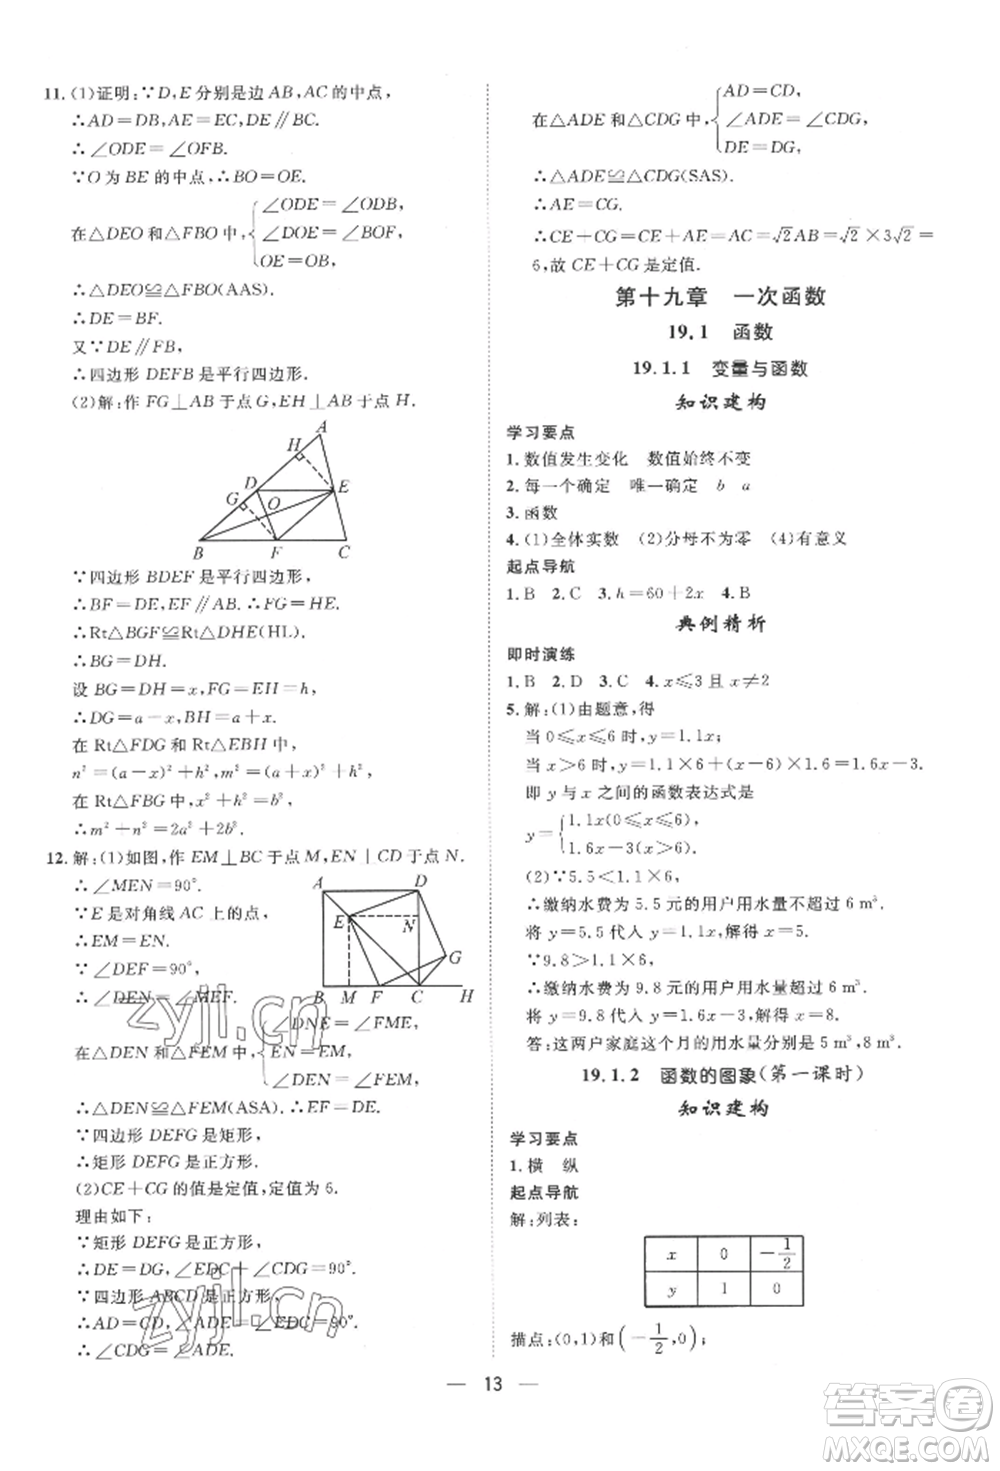 11. (1)证明:∵D,E分别是边AB,AC的中点,
∴AD=DB,AE=EC,DE∥BC.
∴∠ODE=∠OFB.
∵O为BE的中点,∴BO=OE.
在△DEO和△FBO中,{∠ODE=∠ODB,
∠DOE=∠BOF,
OE=OB,
∴△DEO≌△FBO(AAS).
∴DE=BF.
又∵DE∥FB,
∴四边形DEFB是平行四边形.
(2)解:作FG⊥AB于点G,EH⊥AB于点H.
A
H
D
G
E
O
B
F
C
∵四边形BDEF是平行四边形,
∴BF=DE,EF∥AB.∴FG=HE.
∴Rt△BGF≌Rt△DHE(HL).
∴BG=DH.
设BG=DH=x,FG=EH=h,
∴DG=a-x,BH=a+x.
在Rt△FDG和Rt△EBH中,
n²=(a-x)²+h²,m²=(a+x)²+h².
在Rt△FBG中,x²+h²=b².
∴m²+n²=2a²+2b².
12. 解:(1)如图,作EM⊥BC于点M,EN⊥CD于点N.
∴∠MEN=90°.
∵E是对角线AC上的点,
∴EM=EN.
∵∠DEF=90°,
∴∠DEN=∠MEF.
A
D
E
N
G
B
M
F
C
H
在△DEN和△FEM中,{∠DNE=∠FME,
EN=EM,
∠DEN=∠FEM,
∴△DEN≌△FEM(ASA).∴EF=DE.
∵四边形DEFG是矩形,
∴矩形DEFG是正方形.
(2)CE+CG的值是定值,定值为6.
理由如下:
∵矩形DEFG是正方形,
∴DE=DG,∠EDC+∠CDG=90°.
∵四边形ABCD是正方形,
∴AD=CD,∠ADE+∠EDC=90°.
∴∠CDG=∠ADE.
在△ADE和△CDG中,{AD=CD,
∠ADE=∠CDG,
DE=DG,
∴△ADE≌△CDG(SAS).
∴AE=CG.
∴CE+CG=CE+AE=AC=√2AB=√2×3√2=
6,故CE+CG是定值.
第十九章 一次函数
19.1 函数
19.1.1 变量与函数
知识建构
学习要点
1. 数值发生变化 数值始终不变
2. 每一个确定 唯一确定 b a
3. 函数
4. (1)全体实数 (2)分母不为零 (4)有意义
起点导航
1. B 2. C 3. h=60+2x 4. B
典例精析
即时演练
1. B 2. D 3. C 4. x≤3且x≠2
5. 解:(1)由题意,得
当0≤x≤6时,y=1.1x;
当x>6时,y=1.1×6+(x-6)×1.6=1.6x-3.
即y与x之间的函数表达式是
y={1.1x(0≤x≤6),
1.6x-3(x>6).
(2)∵5.5<1.1×6,
∴缴纳水费为5.5元的用户用水量不超过6 m³.
将y=5.5代入y=1.1x,解得x=5.
∵9.8>1.1×6,
∴缴纳水费为9.8元的用户用水量超过6 m³.
将y=9.8代入y=1.6x-3,解得x=8.
答:这两户家庭这个月的用水量分别是5 m³,8 m³.
19.1.2 函数的图象(第一课时)
知识建构
学习要点
1. 横 纵
起点导航
解:列表:
x 0 -1/2
y 1 0
描点:(0,1)和(-1/2,0);
— 13 —
zyjl.cn
zyjl.cn
答案圈
MXQE.COM